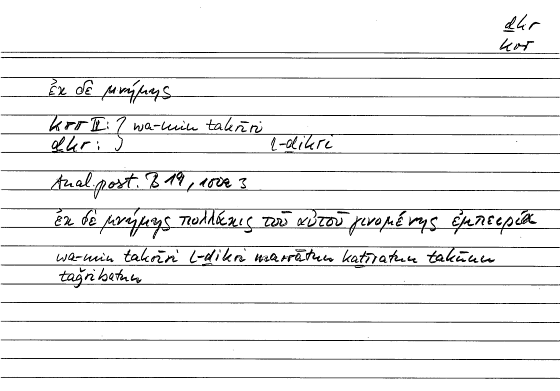 ḏkr
krr
ἐκ δὲ μνήμης
krr II: } wa-min takrīri
ḏkr: } l-ḏikri
Anal. post. B 19, 100a 3
ἐκ δὲ μνήμης πολλάκις τοῦ αὐτοῦ γινομένης ἐμπειρία
wa-min takrīri l-ḏikri marrātun kaṯīratun takūnu
taǧribatun